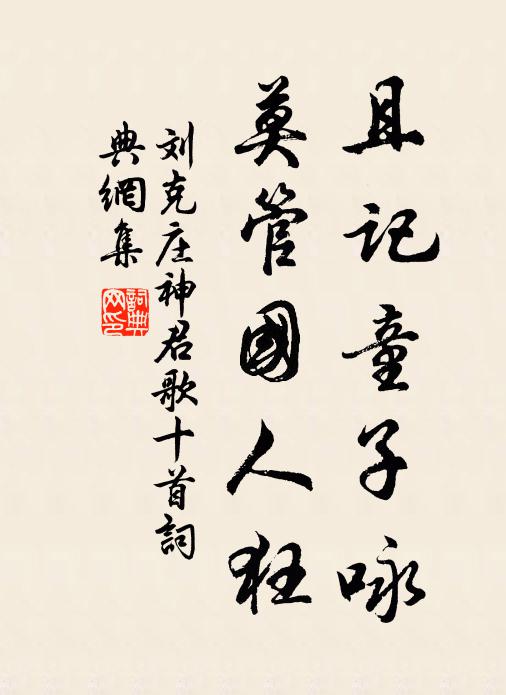 且記童子咏
莫管國人狂
刘克庄神君歌十首詞
典網集
詞典網印